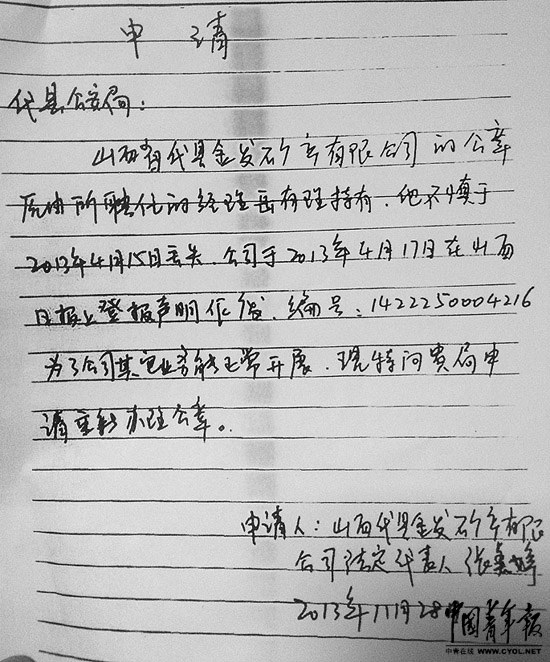 申 请
代县公安局:
山西省代县金发矿产有限公司的公章
原由所聘任的经理岳有理持有.他不慎于
2013年4月15日丢失.公司于2013年4月17日在山西
日报上登报声明作废.编号:1422250004216
为了公司其它业务能正常开展.现特向贵局申
请重新办理公章。
申请人:山西代县金发矿产有限
公司法定代表人 张
2013年11月28
中国青年报
中青在线 WWW.CYOL.NET